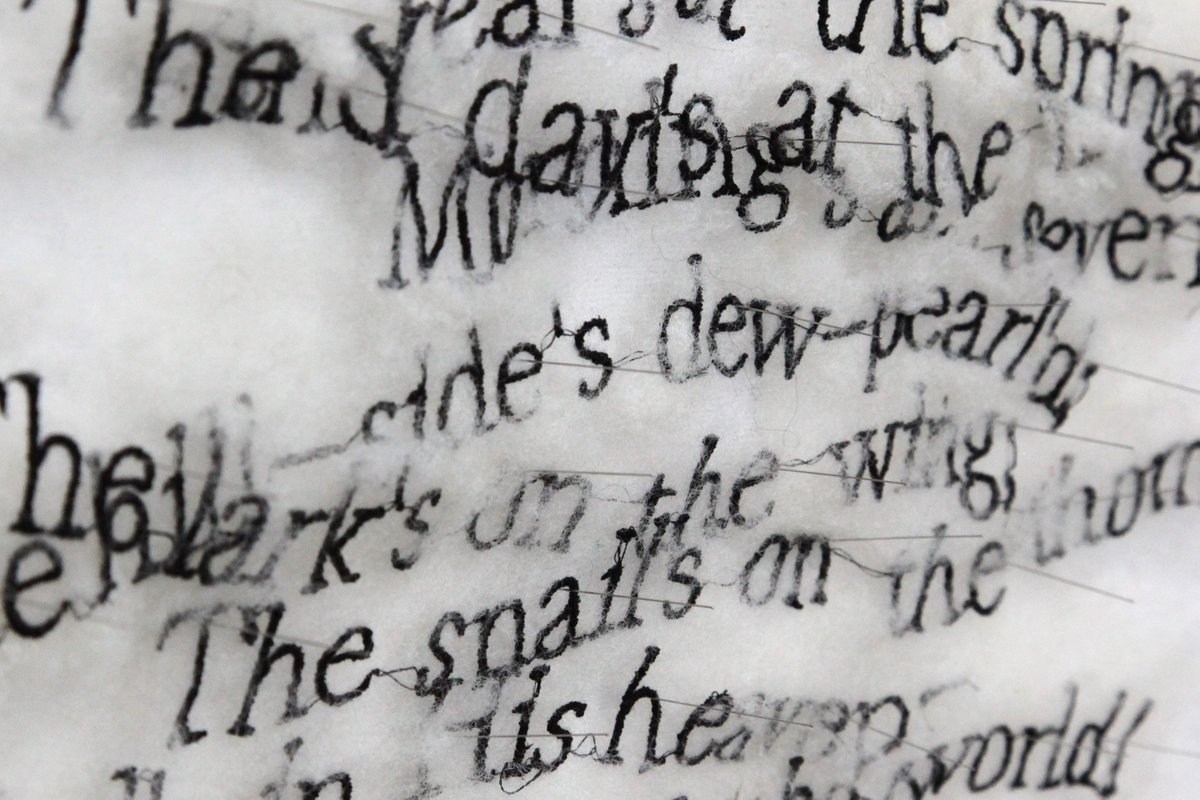 The year's at the spring
day's at the
Morning's at seven
The hill-side's dew-pearl'd;
The lark's on the wing;
The snail's on the thorn
his heaven
in the world!